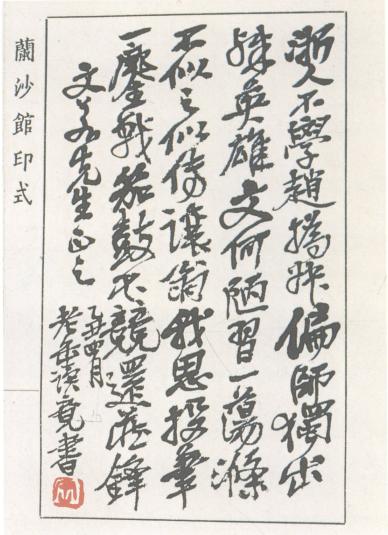 蘭沙館印式
浙人不學趙撝叔偏師獨出
殊英雄文何陋習一蕩滌
不似之似傳讓翁我思投筆
一鏖戰笳鼓不競還藏鋒
文 先生正之
乙丑四月
老缶讀竟書